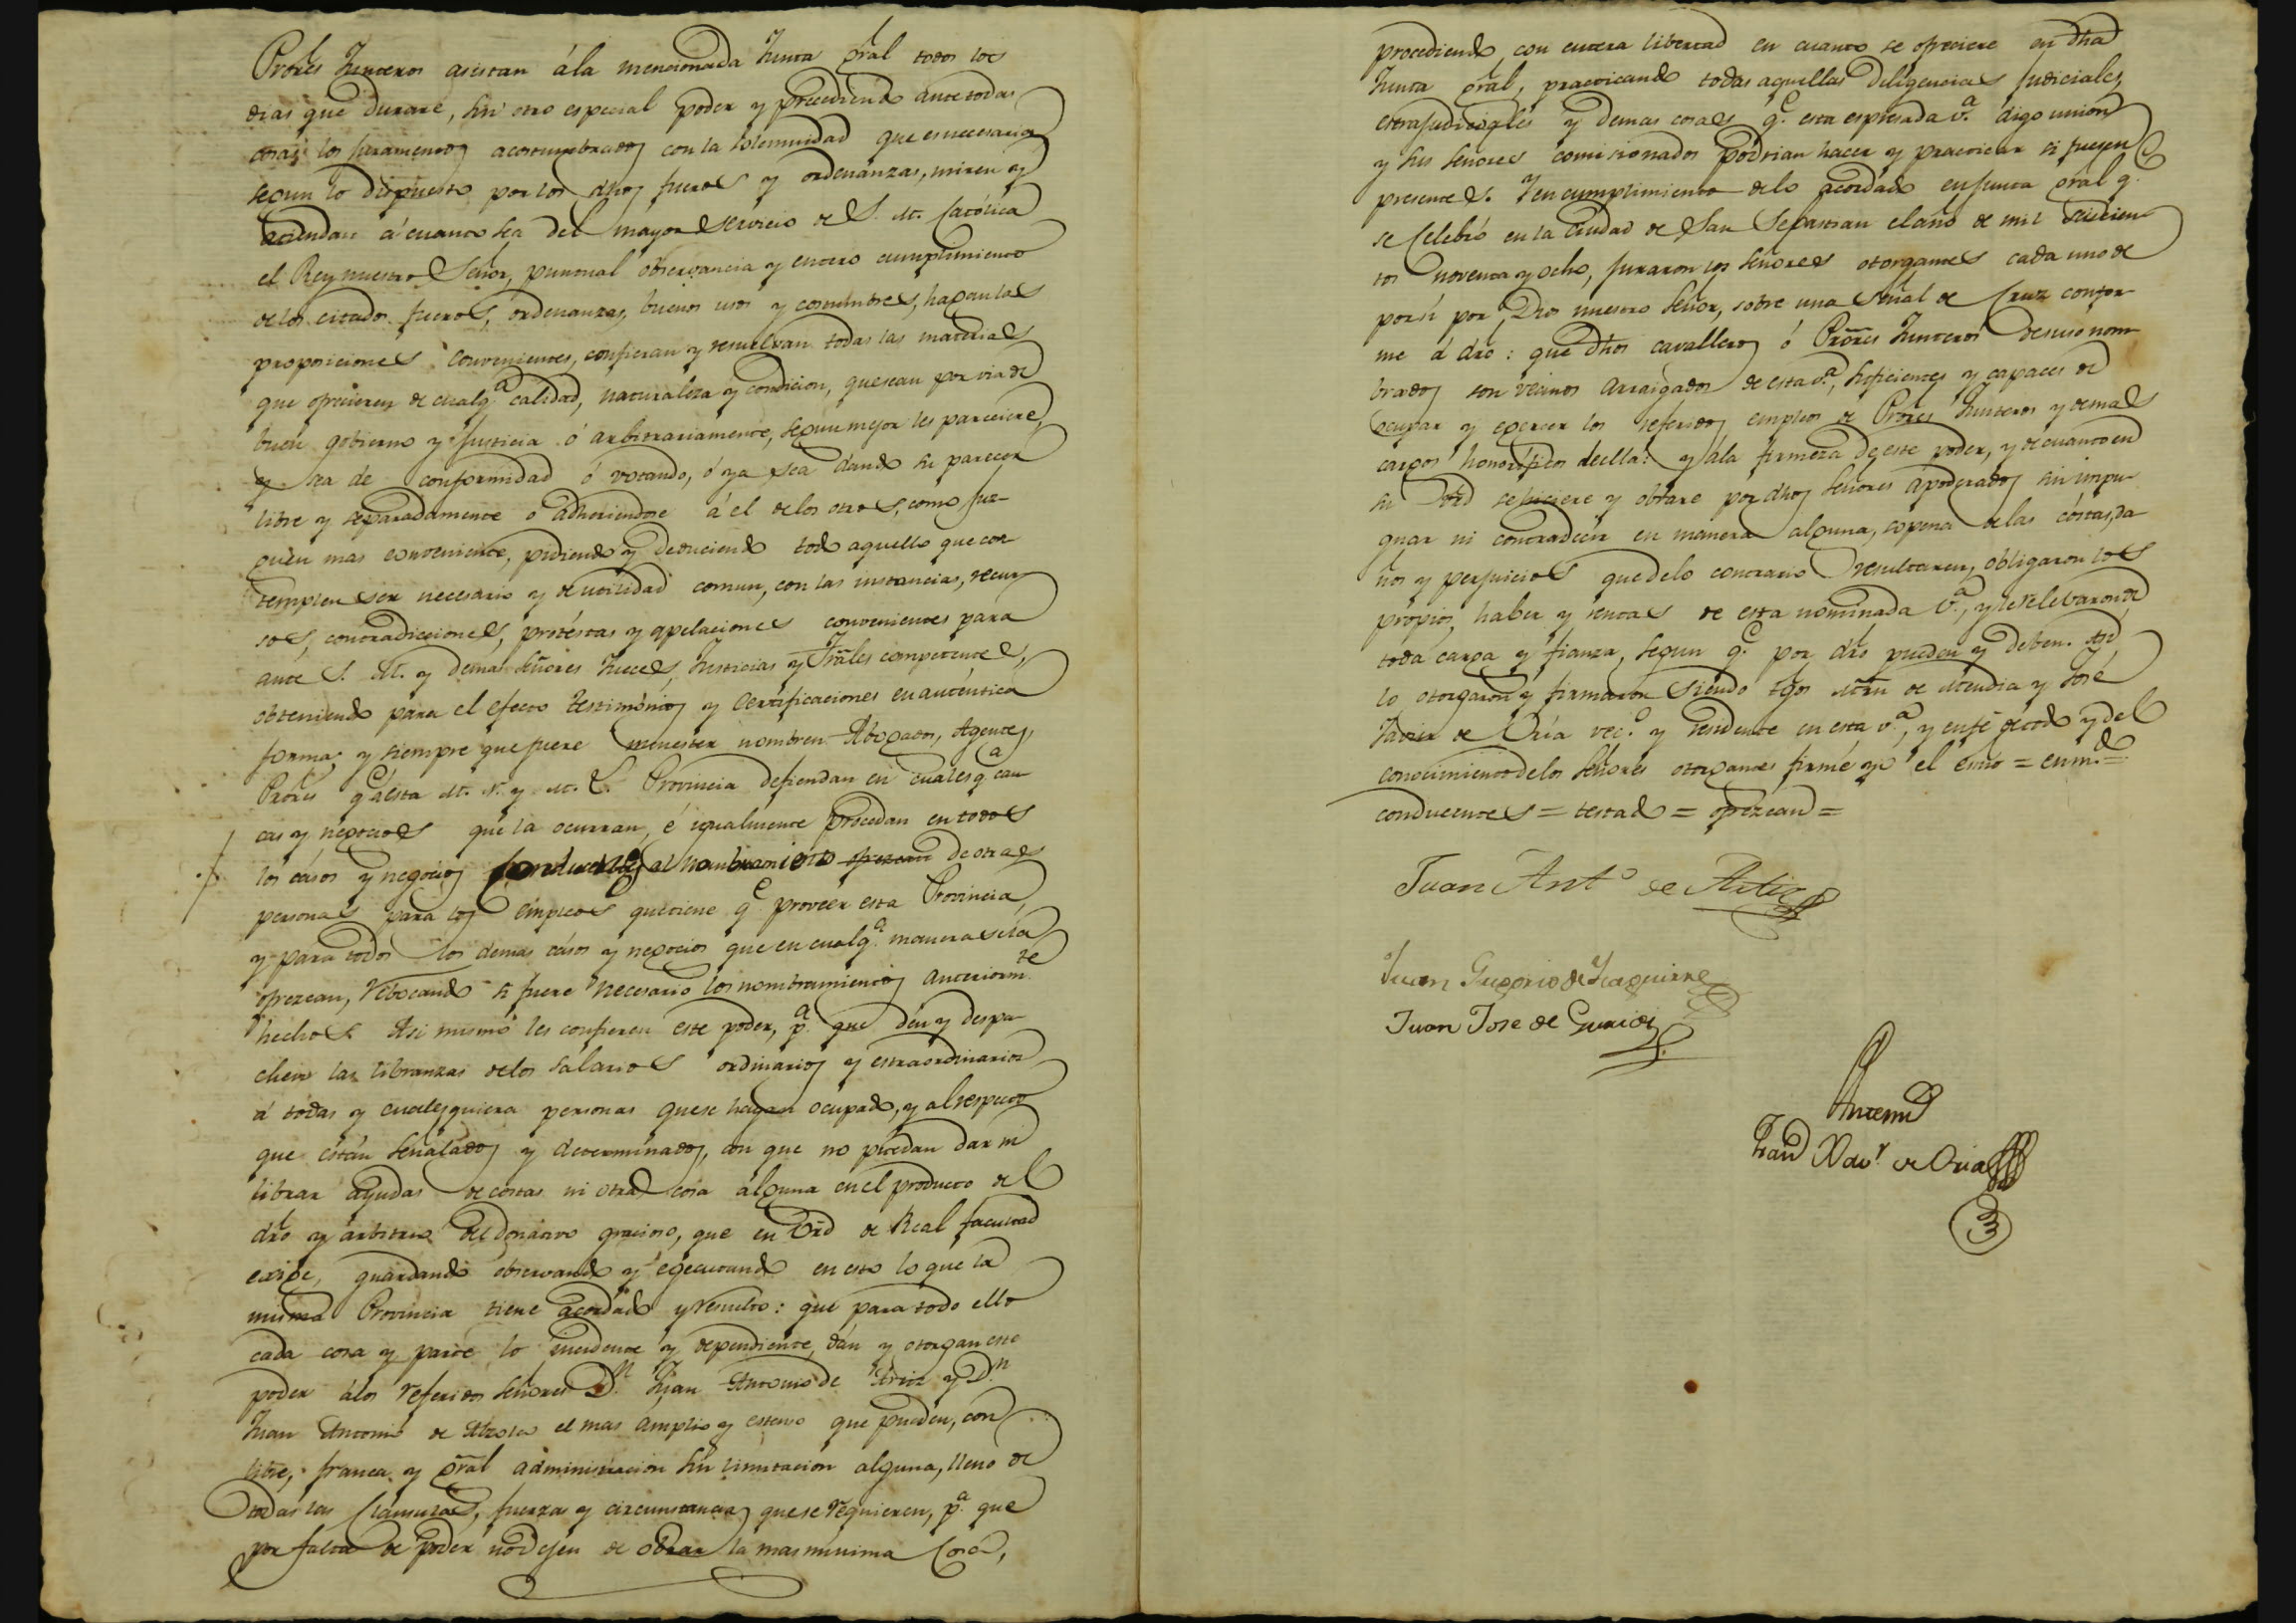 Prores Junteros asistan á la mencionada Junta gral todos los
dias que durare, sin otro especial poder y precediendo ante todas
cosas los juramentos acostumbrados con la solemnidad que es necesaria
segun lo dispuesto por los dhos fueros y ordenanzas, miren y
atiendan á cuanto sea del mayor servicio de S. M. Católica
el Rey nuestro Señor, puntual observancia y entero cumplimiento
de los citados fueros, ordenanzas, buenos usos y costumbres, hagan las
proposiciones convenientes, confieran y resuelvan todas las materias
que ofrecieren de cualqa calidad, naturaleza y condicion, que sean por via de
buen gobierno y Justicia ó arbitrariamente, segun mejor les pareciere,
y sea de conformidad ó votando, ó ya sea dando su parecer
libre y separadamente ó adhiriendose á el de los otros, como juz-
guen mas conveniente, pidiendo y deduciendo todo aquello que con
templen ser necesario y de utilidad comun, con las instancias, recur
sos, contradicciones, protestas y apelaciones convenientes para
ante S. M. y demas Señores Jueces, Justicias y Trales competentes,
obteniendo para el efecto testimonios y Certificaciones en auténtica
forma; y siempre que fuere menester nombren Abogados, Agentes,
Prores qe á esta M. N. y M. L. Provincia defiendan en cualesqa cau
cas y negocios que la ocurran, é igualmente procedan en todos
los casos y negocios conducentes al nombramiento ofrezcan de otras
personas para los empleos que tiene qe proveer esta Provincia,
y para todos los demas casos y negocios que en cualqa manera se la
ofrezcan, revocando si fuere necesario los nombramientos anteriormte
hechos. Asi mismo les confieren este poder, pa que den y despa-
chen las libranzas de los salarios ordinarios y estraordinarios
á todas y cualesquiera personas que se hayan ocupado, y al respecto
que están señalados y determinados, con que no puedan dar ni
librar ayudas de costas ni otra cosa alguna en el producto del
dro y arbitrio del donativo gracioso, que en vrd de Real facultad
exige, guardando observando y egecutando en esto lo que la
misma Provincia tiene acordado y resuelto: que para todo ello
cada cosa y parte lo incidente y dependiente, dán y otorgan este
poder á los referidos Señores Dn Juan Antonio de Artiz y Dn
Juan Antonio de el mas amplio y estenso que pueden, con
libre, franca y gral administracion sin limitacion alguna, lleno de
todas las Clausulas, fuerzas y circunstancias que se requieren, pa que
por falta de poder no dejen de obrar la mas minima Cosa,
procediendo con entera libertad en cuanto se ofreciere en dha
Junta gral, practicando todas aquellas diligencias Judiciales,
estrajudiciales y demas cosas qe esta espresada va digo union
y sus Señores comisionados podrian hacer y practicar si fuesen
presentes. Y en cumplimiento de lo acordado en Junta gral qe
se Celebró en la Ciudad de San Sebastian el año de mil seiscien
tos noventa y ocho, juraron los Señores otorgantes cada uno de
por sí por Dios nuestro Señor, sobre una Señal de Cruz confor-
me á dro: que dhos cavalleros ó Prores Junteros desuso nom
brados son vecinos arraigados de esta va, suficientes y capaces de
ocupar y egercer los referidos empleos de Prores Junteros y demas
cargos honoríficos de ella: y á la firmeza de este poder, y de cuanto en
su vrd se hiciere y obrare por dhos Señores apoderados sin impu-
gnar ni contradecir en manera alguna, so pena de las costas, da
ños y perjuicios que de lo contrario resultaren, obligaron los
propios, haber y rentas de esta nominada Va, y le relevaron de
toda carga y fianza, segun qe por dro pueden y deben. Asi
lo otorgaron y firmaron siendo tgos Mrn de Mendia y José
Javier de Oria veco y residente en esta va, y en fé de todo y del
conocimiento de los Señores otorgantes firmé yo el esno = enmdo =
conducentes = testado = ofrezcan =
Juan Anto de Artiz
Juan Gregorio de Yzaguirre
Juan Jose de Guridi
Antemi
Fran Xavr de Oria
3